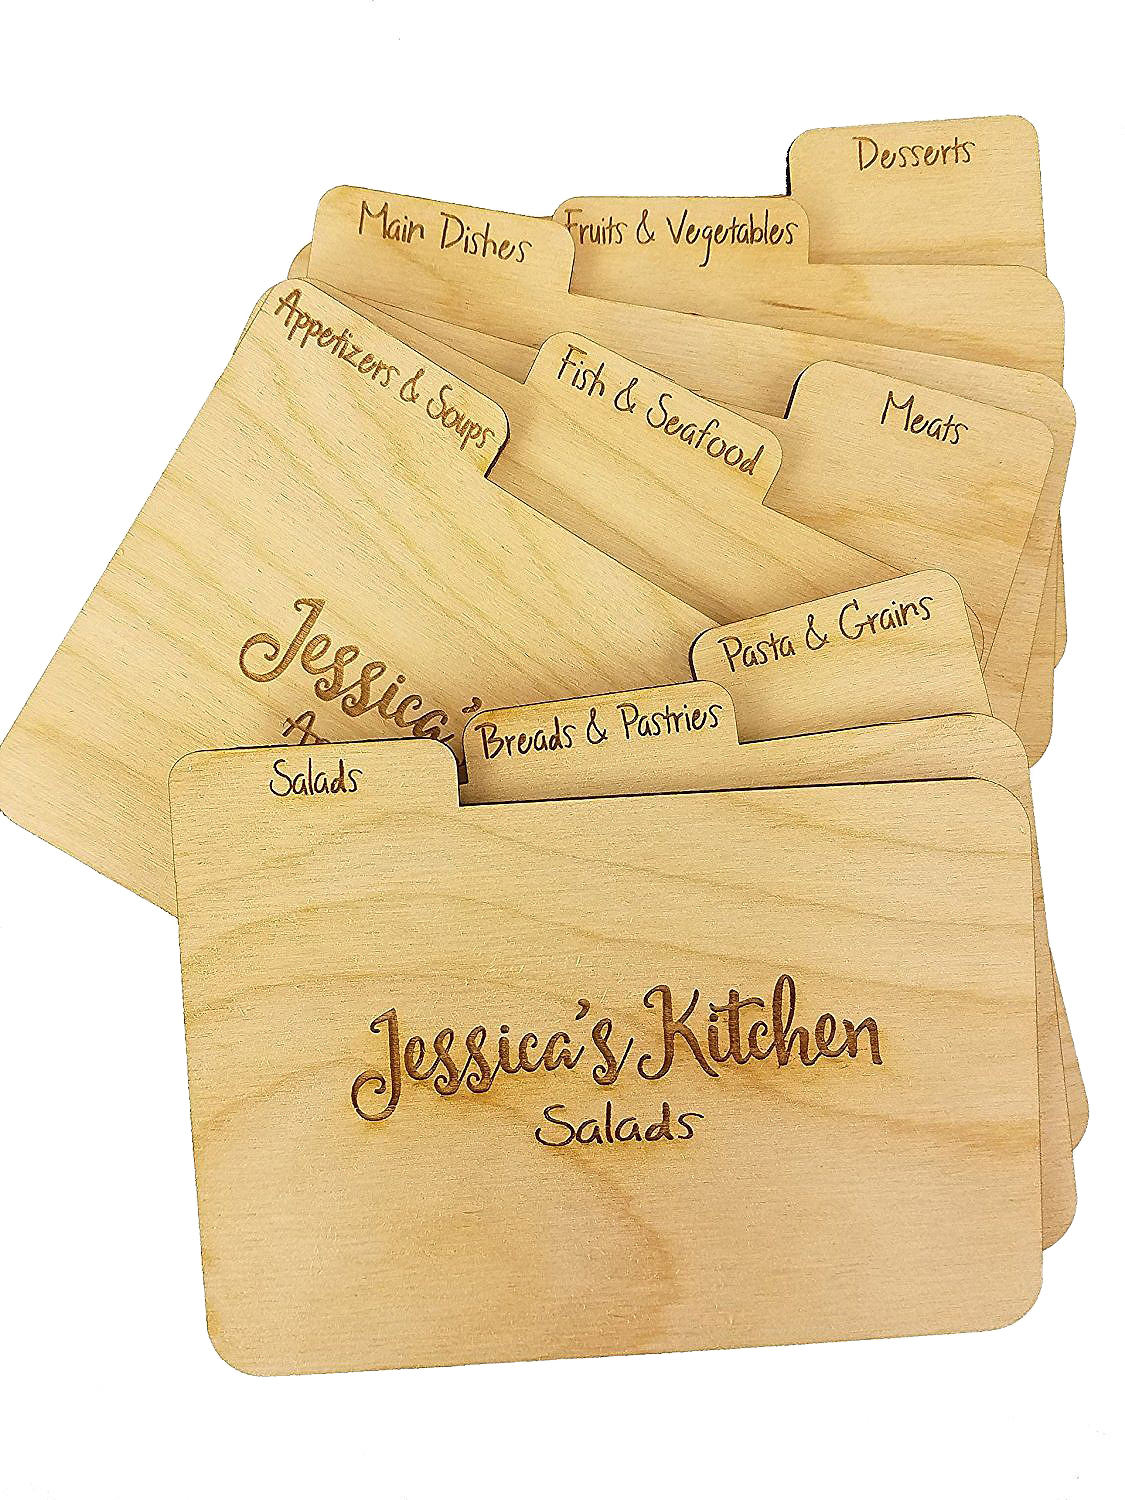 Desserts
Main Dishes
Fruits & Vegetables
Appetizers & Soups
Fish & Seafood
Meats
Jessica's
Pasta & Grains
Breads & Pastries
Salads
Jessica's Kitchen
Salads